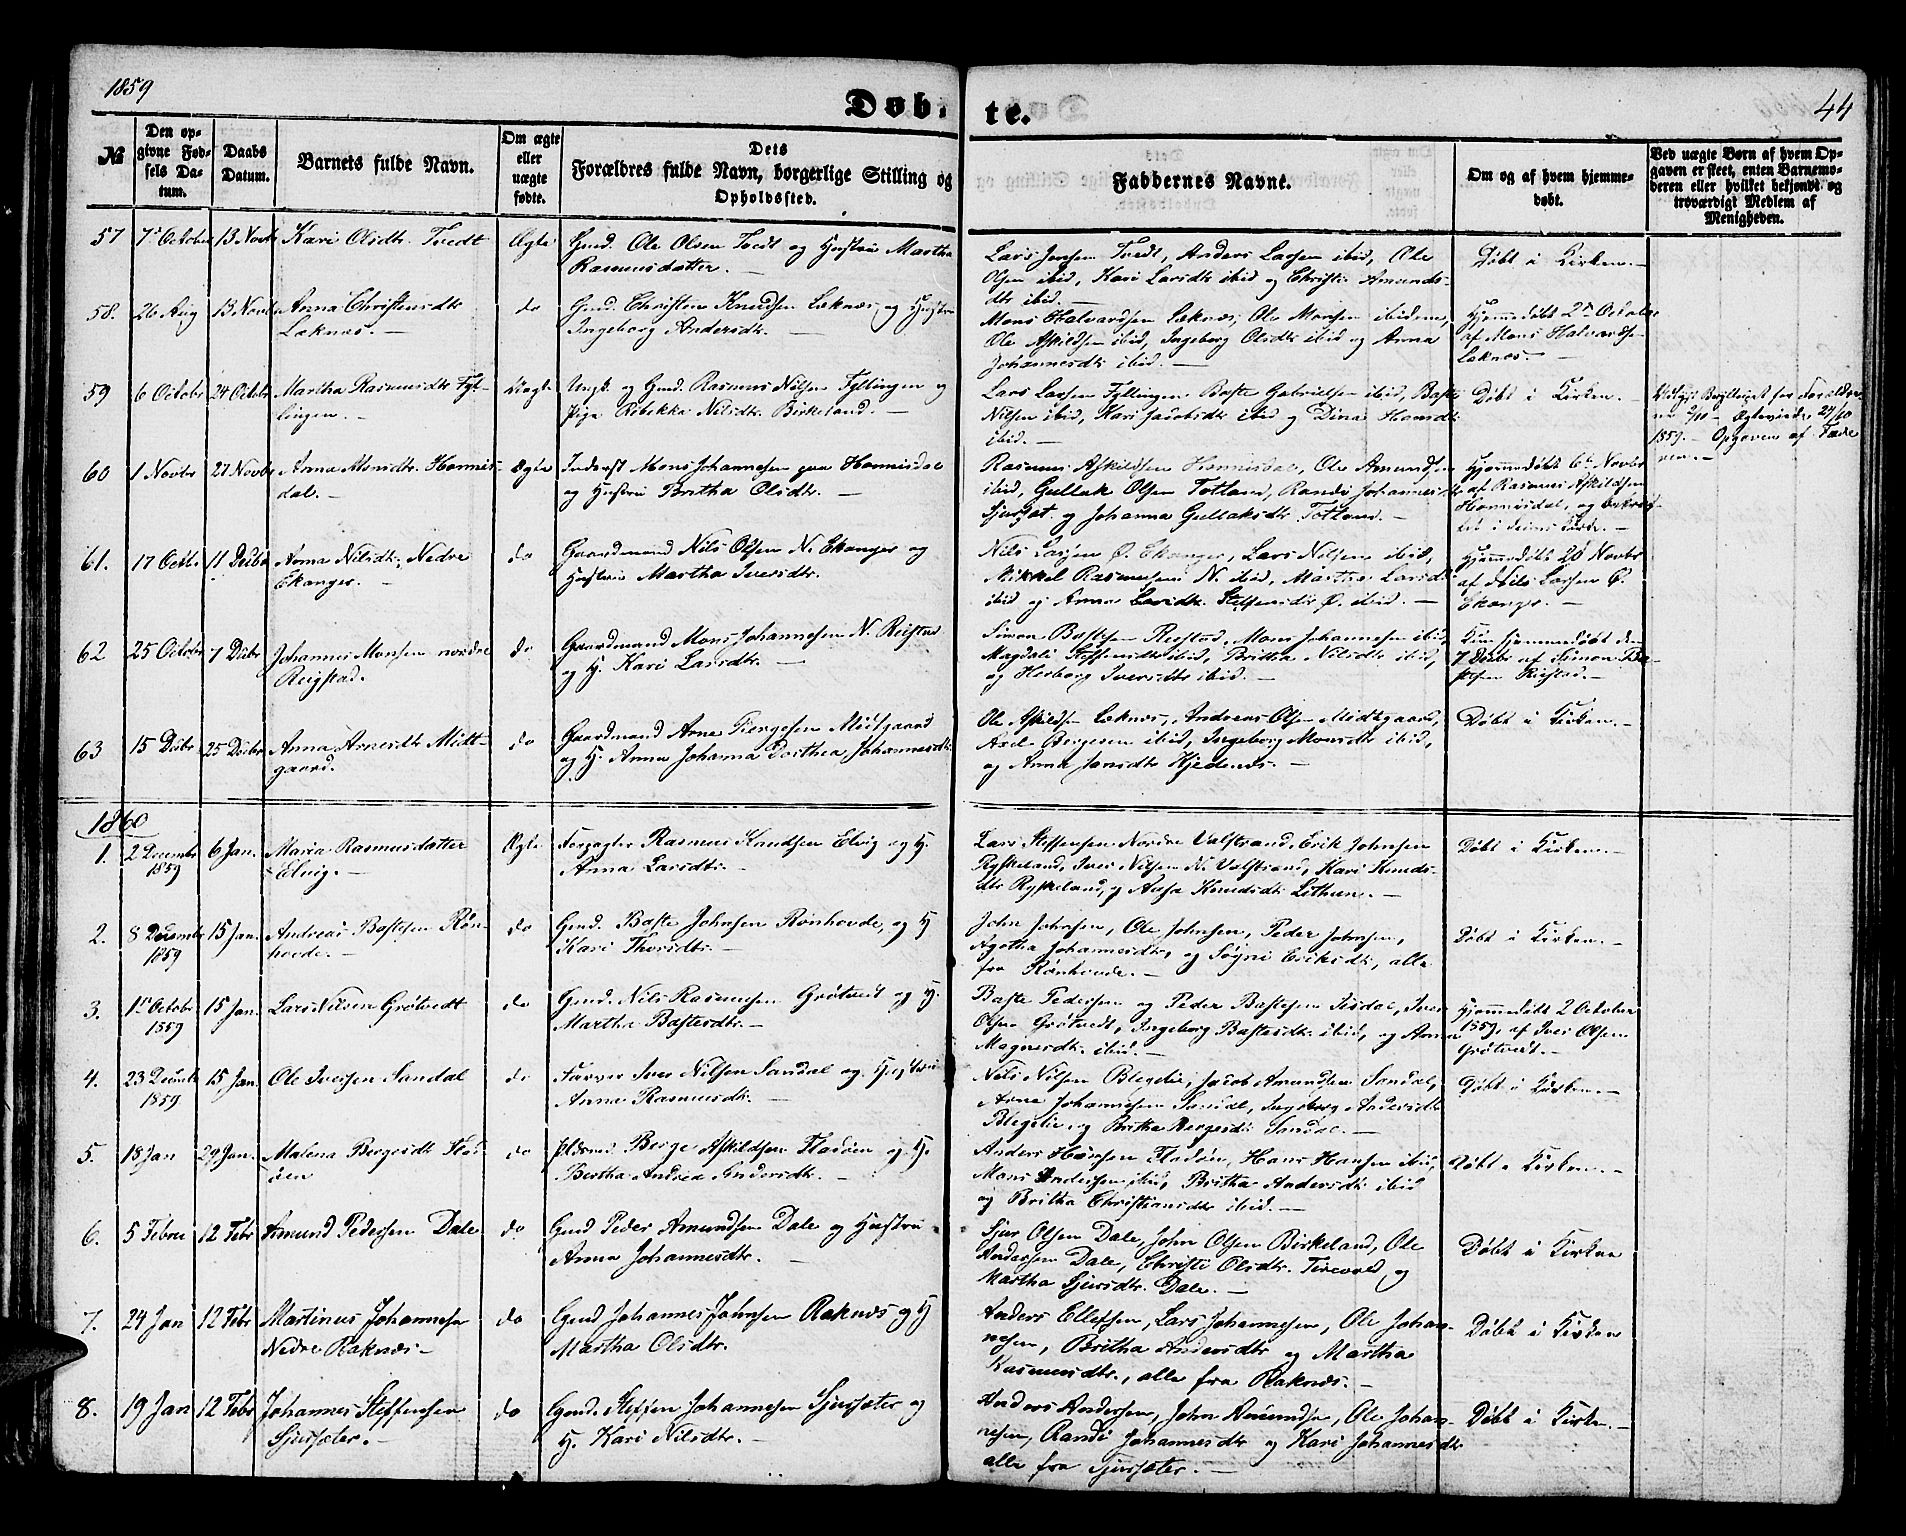 1859
44
Døb-
te.
№
Den op-
givne Fød-
sels Da-
tum.
Daabs
Datum.
Barnets fulde Navn.
Om ægte
eller
uægte
fødte.
Dets
Forældres fulde Navn, borgerlige Stilling og
Opholdssted.
Faddernes Navne.
Om og af hvem hjemme-
døbt.
Ved uægte Børn af hvem Op-
gaven er skeet, enten Barnemo-
deren eller hvilket bekjendt og
troværdigt Medlem af
Menigheden.
57 7de October 13 Novbr Kari Olsdtr. Tvedt Ægte Gmd. Ole Olsen Tvedt og Hustru Martha
Rasmusdatter. —
Lars Tvedt, Anders Larsen ibid, Ole
Olsen ibid, Kari Larsdtr ibid og Christi Amunds-
dtr ibid. —
Døbt i Kirken. —
58. 26 Aug 13 Novbr Anna Christensdtr
Leknæs. —
do Gmd. Christen Knudsen Leknæs, og Hustru
Ingeborg Andersdtr. —
Mons Halvardsen Leknæs, Ole Monsen ibidem,
Ole Askildsen ibid, Ingeborg Olsdtr ibid og Anna
Johannesdtr ibid. —
Hjemmedøbt 2den October
af Mons Halvardsen
Leknæs. —
59 6 Octobr 24 Octobr Martha Rasmusdtr Fyl-
lingen. —
Uægte Ungk. og Gmd. Rasmus Nilsen Fyllingen og
Pige Rebekka Nilsdtr. Birkeland. —
Lars Larsen Fyllingen Baste Gabrielsen ibid, Baste
Nilsen ibid, Kari Jacobsdtr ibid og Dina Hansdtr
ibid. —
Døbt i Kirken. —
1859. — Opgaven af Fade
ren. —
60 1 Novbr 27 Novbr Anna Monsdtr. Hannis-
dal. —
Ægte Inderst Mons Johannesen paa Hannisdal
og Hustru Britha Olsdtr. —
Rasmus Askildsen Hannisdal, Ole Amundsen
ibid, Gullak Olsen Totland, Randi Johannesdtr
og Johanna Gullaksdtr Totland. —
Hjemmedøbt 6te Novbr
af Rasmus Askildsen
Hannisdal, og bekræf-
tet i Kirke. —
61. 17 Octbr 11 Decbr Anna Nilsdtr. Nedre
Ekanger. —
do Gaardmand Nils Olsen N. Ekanger og
Hustru Martha Iversdtr.
Nils Larsen Ø. Ekanger, Lars Nilsen ibid,
Mikkel Rasmusen N. ibid, Martha Larsdtr
ibid og Anna Steffensdtr Ø. ibid. —
Hjemmedøbt 20 Novbr
af Nils Larsen Ø.
Ekanger. —
62 25 Octobr 7 Decbr Johannes Monsen nordre
Reigstad.
do Gaardmand Mons Johannesen N. Reistad
og H. Kari Larsdtr. —
Simon Bastesen Reistad, Mons Johannesen ibid,
Magdali Steffensdtr ibid, Britha Nilsdtr ibid,
og Herborg Iversdtr ibid. —
Kun hjemmedøbt den
7 Decbr af Simon Ba-
stesen Reistad. —
63 15 Decbr 25 Decbr Anna Arnesdtr Midt-
gaard.
do Gaardmand Arne Børgesen Midtgaard
og H. Anna Johanna Dorthea Johannesdtr.
Ole Askildsen Leknæs, Andreas Olsen Midtgaard,
Axel Børgesen ibid, Ingeborg Monsdtr ibid,
og Anna Jansdtr Hjedenæs. —
Døbt i Kirken. —
1860
1. 2 Decembr
1859
6 Jan. Maria Rasmusdatter
Elvig. —
Ægte Forpagter Rasmus Knudsen Elvig og H.
Anna Larsdtr. —
Lars Steffensen Nordre Valstrand, Erik Johnsen
Ryskeland, Iver Nilsen N. Valstrand, Kari Knuds-
dtr Ryskeland, og Ansa Knudsdtr Lithun. —
Døbt i Kirken. —
2. 8 Decembr
1859
15 Jan. Andreas Bastesen Røn-
hovde. —
do Gmd. Baste Johnsen Rønhovde, og H
Kari Thorsdtr. —
John Johnsen, Ole Johnsen, Peder Johnsen,
Agatha Johannesdtr, og Søgni Eriksdtr, alle
fra Rønhovde. —
Døbt i Kirken. —
3. 1ste Octobr
1859
15 Jan. Lars Nilsen Grøtvedt
do Gmd. Nils Rasmusen Grøtvedt og H.
Martha Bastesdtr. —
Baste Pedersen og Peder Bastesen Isdal, Iver
Olsen Grøtvedt, Ingeborg Bastesdtr ibid, og Anna
Magnesdtr ibid. —
Hjemmedøbt 2 October
1859, af Iver Olsen
Grøtvedt. —
4. 23 Decembr
1859
15 Jan. Ole Iversen Sandal
do Farver Iver Nilsen Sandal og Hustru
Anna Rasmusdtr. —
Nils Nilsen Blegelie, Jacob Amundsen Sandal,
Arne Johannesen Sandal, Ingeborg Andersdtr
Blegelie, og Britha Børgesdtr Sandal. —
Døbt i Kirken. —
5. 18 Jan 29 Jan. Malena Bergesdtr Flad-
øen
do Pldsmd. Berge Askildsen Fladøen og H.
Bertha Andrea Andersdtr. —
Anders Hansen Fladøen, Hans Hansen ibid,
Mons Andersen ibid, Britha Andersdtr ibid
og Britha Christiansdtr ibid. —
Døbt i Kirken. —
6. 5 Februar 12 Febr Amund Pedersen Dale
do Gmd Peder Amundsen Dale og Hustru
Anna Johannesdtr. —
Sjur Olsen Dale, John Olsen Birkeland, Ole
Andersen Dale, Christi Olsdtr. Tirevold og
Martha Sjursdtr. Dale. —
Døbt i Kirken
7. 24 Jan 12 Febr Martinus Johannesen
Nedre Raknæs —
do Gmd Johannes Johnsen Raknæs og H
Martha Olsdtr.
Anders Ellefsen, Lars Johannesen, Ole Johan-
nesen, Britha Andersdtr og Martha
Rasmusdtr., alle fra Raknæs. —
Døbt i Kirken
8. 19 Jan 12 Febr Johannes Steffensen
Sjursæter. —
do Gmd. Steffen Johannesen Sjursæter og
H. Kari Nilsdtr. —
Anders Andersen, John Amundsen, Ole Johan-
nesen, Randi Johannesdtr og Kari Johannesdtr
alle fra Sjursæter. —
Døbt i Kirken. —